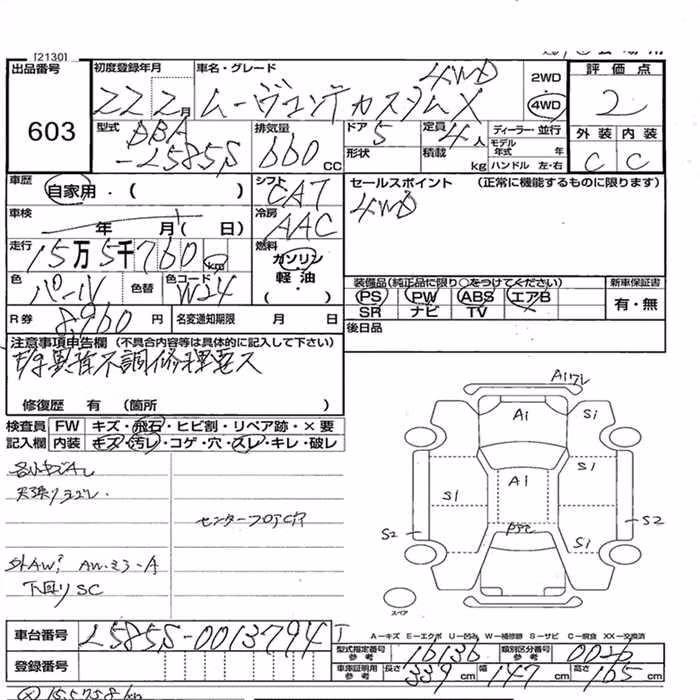 [2130]
出品番号 初度登録年月 車名・グレード 2WD 評価点
603 22 2月 ムーヴコンテカスタムX 4WD 4WD 2
型式 DBA-L585S 排気量 660 CC ドア 5 定員 4人 ディーラー・並行 外装 内装
形状 積載 kg モデル年式 年 ハンドル 左・右 C C
車歴 自家用・( ) シフト CAT セールスポイント (正常に機能するものに限ります)
車検 年 月( 日) 冷房 AAC 4WD
走行 15万5千760 km 燃料 ガソリン・軽油・( )
色 パール 色替 色コード W24 装備品(純正品に限り○をつけてください) 新車保証書
PS PW ABS エアB 有・無
SR ナビ TV
R券 8,960円 名変通知期限 月 日 後日品
注意事項申告欄 (不具合内容等は具体的に記入して下さい)
不調修理要ス
修復歴 有 (箇所 )
検査員 FW キズ・飛石・ヒビ割・リペア跡・×要
記入欄 内装 キズ・汚レ・コゲ・穴・スレ・キレ・破レ
各小キズAし
天張りヨゴレ.
センターフロア穴
外AW? AW・ミラーA
下回りSC
A1ワレ
A1 S1
A1 S1
S1
S2 S2
S1
スペア
A-キズ E-エクボ U-凹み W-補修跡 S-サビ C-腐食 XX-交換済
車台番号 L585S-0013794
登録番号
型式指定番号 参考 16136 類別区分番号 参考 0026
車庫証明用 参考 長さ 339cm 幅 147cm 高さ 165cm
155758km